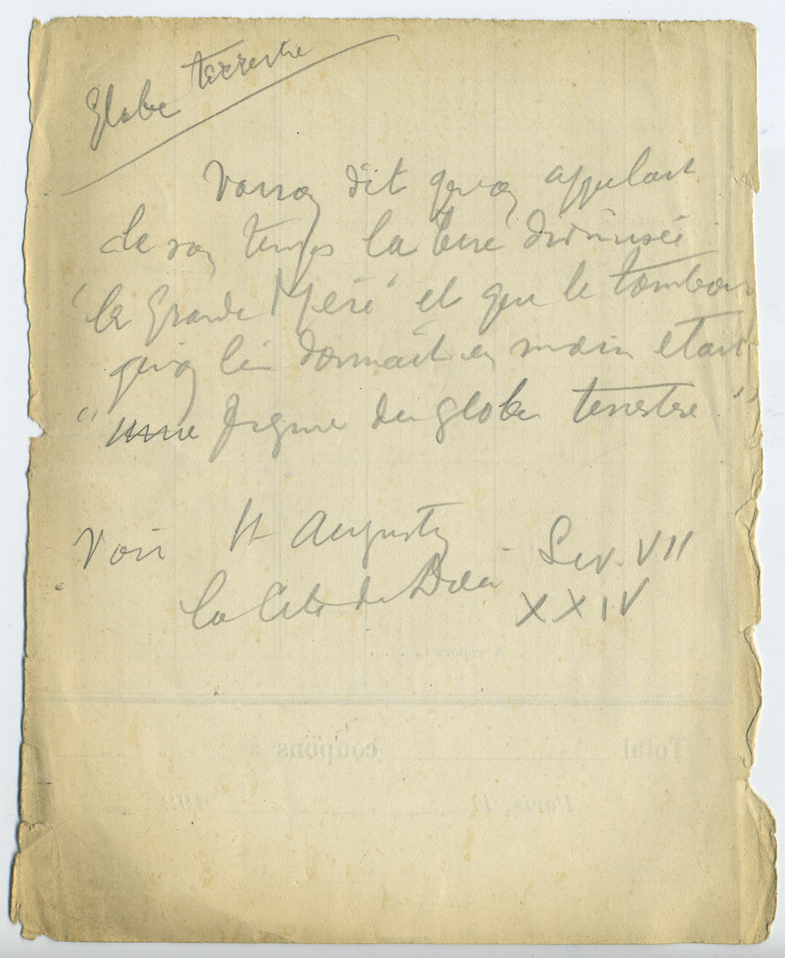 Globe terrestre
Varron dit qu'on appelait
de son temps la terre divinisée
"la Grande Mère" et que le tambour
qu'on lui donnait en main était
"une figure du globe terrestre."
Voir St Augustin Liv. VII
La Cité de Dieu XXIV
à reporter
Total coupons à
Paris, le 192